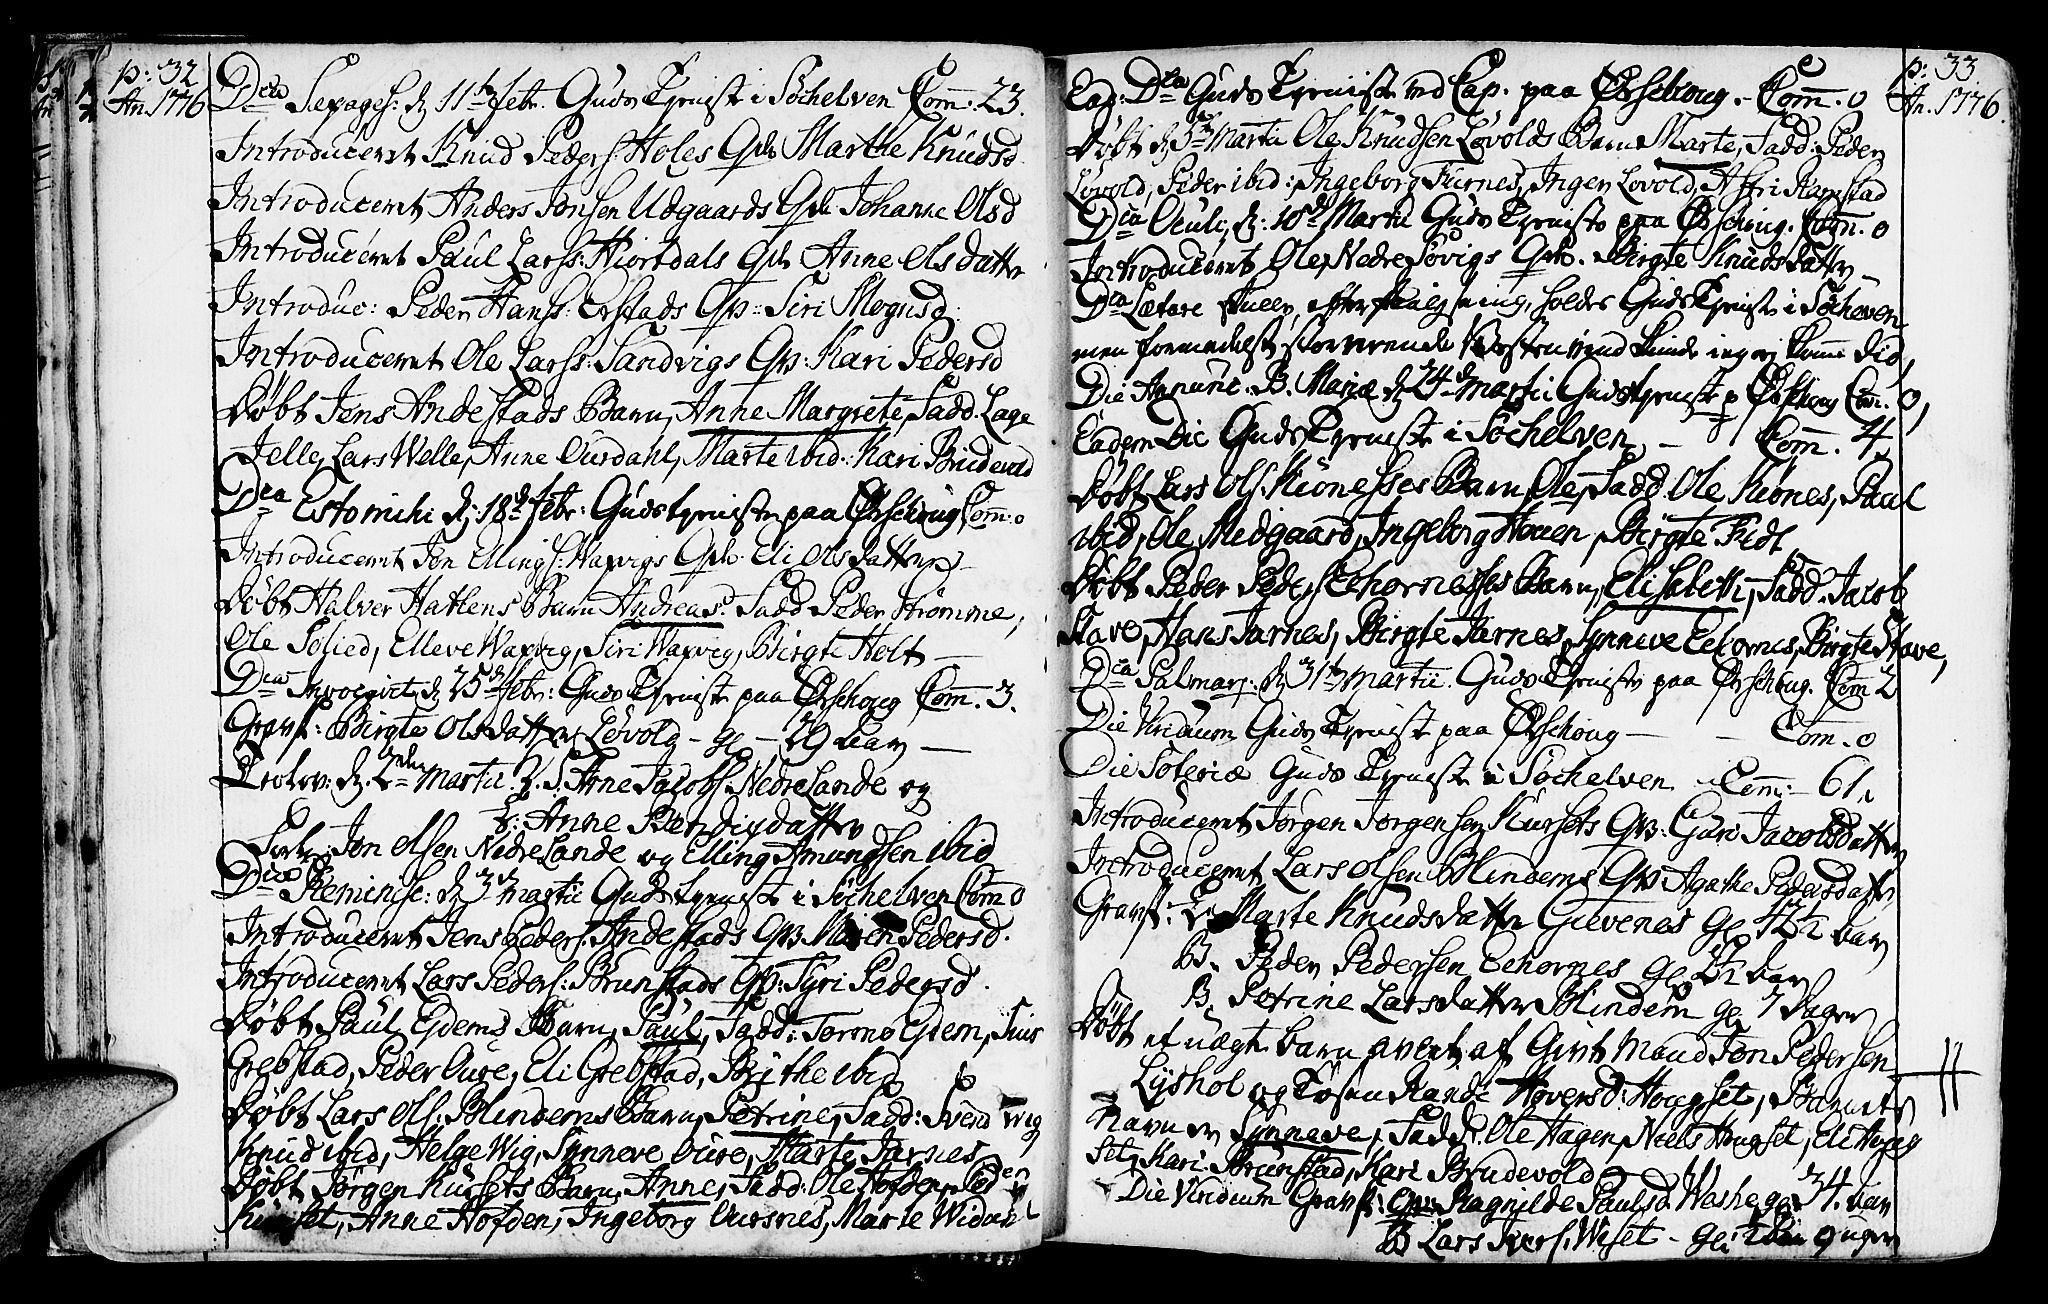 p: 32
An. 1776
Dca Sexages: d 11te Febr. Guds Tjeniste i Søchelven Com. 23.
Introduceret Knud Peders: Holes Qv. Marthe Knudsd
Introduceret Anders Jonsen Udgaards Qv. Johanne Olsd
Introduceret Paul Larss: Hiortdals Qv. Anne Olsdatter
Introduc: Peder Hanss: Erstads Qv: Siri Mognsd:
Introduceret Ole Larss: Sandvigs Qv: Kari Pedersd
Døbt Jens Andestads Barn, Anne Margrete, Fadd. Lage
Jelle, Lars Welle, Anne Ousdahl, Marte ibid: Kari Brudevold
Dca Estomihi d: 18de Febr: Gudstjeniste paa Ørschoug Com: 0
Introduceret Jon Ellings: Waxvigs Qv. Eli Olsdatter
Døbt Halver Hatlens Barn Andreas, Fadd Peder Strømme,
Ole Solied, Elleve Waxvig, Siri Waxvig, Birgte Holt
Dca Invocavit d 25de Febr: Guds Tjeniste paa Ørschoug Com. 3.
Gravf: Birgte Olsdatter Løvold - ge - 29 Aar
Trolov: d. 2den Martii. Y. S. Arne Jacobs. Nedre Lande og
P: Anne Bendixdatter
Forl: Jon Olsen Nedre Lande og Elling Amundsen ibid
Dca Reminisc: d 3de Martii Guds tjeniste i Søchelven Com 0
Introduceret Jens Peders. Andestads Qv. Maren Pedersd.
Introduceret Lars Peders: Brunstads Qv: Syri Pedersd.
Døbt Paul Ejdems Barn, Paul, Fadd: Tormo Ejdem,
Grebstad, Peder Oure, Eli Grebstad, Brithe ibid
Døbt Lars Ols: Blindems Barn, Petrine, Fadd: Svend Wig
Knud ibid, Helge Wig, Synneve Oure, Marte Jarnes
Døbt Jørgen Kursets Barn, Anne, Fadd: Ole Hofden, Peder
Kurset, Anne Hofden, Ingeborg Oursnes, Marte
p: 33.
An. 1776.
Ead: Dca Guds Tjeniste ved Cap. paa Ørschoug. - Com. 0
Døbt d 5te Martii Ole Knudsen Løvolds Barn Marte, Fadd: Peder
Løvold, Peder ibid: Ingeborg Furnes, Inger Lovold, Ramstad
Dca Oculi, d: 10de Martii Guds Tjeniste paa Ørschoug. Com. 0
Introduceret Ole Nedre Søvigs Qv. Birgte Knudsdatter
Dca Lætare skulle, efter holdes Guds Tjeniste i Søchelven
men formedelst stormende Wind kunde ingen komme did,
Die Annunc. B. Mariæ d 24de Martii Guds tjeniste p Ørschoug Com. 0,
Eadem Die Guds Tjeniste i Søchelven - Com. 4.
Døbt Lars Ols. Kionesses Barn, Ole, Fadd. Ole Kiones, Paul
ibid, Ole Midgaard, Ingeborg Houen, Birgte Fidt
Døbt Peder Peders Eehornesses Barn, Elisabeth, Fadd. Jacob
Stave, Hans Jarnes, Birgte Jarnes, Synneve Eehornes, Birgte Stave,
Dca Palmar: d 31te Martii. Guds Tjeniste paa Ørschoug. Com 2
Die Viridium Guds Tjeniste paa Ørschoug - - Com. 0
Die Soteriæ Guds Tjeniste i Søchelven Com: - 61.
Introduceret Jørgen Jørgensen Kursets Qv: Guro Jacobsdatter
Introduceret Lars Olsen Blindems Qv. Agathe Pedersdatter
Gravf: Marte Knudsdatter Gievenes ge 42½ Aar
B. Peder Pedersen Eehornes ge 2½ Aar
B. Petrine Larsdatter Blindem ge 7 Dager
Døbt et uægte barn avlet af Gift Mand Jon Pedersen
Lyshol og Tøsen Rande Hoversd: Hougset, Barnets
Navn er Synneve, Fadd. Ole Hagen, Niels Hougset, Eli Houg
set, Kari Brunstad, Kari Brudevold
Die Viridium Gravf: Qv. Ragnilde Paulsd. Washe ge 34. Aar
B Lars Ivers. Wiset - ge: 9 uger